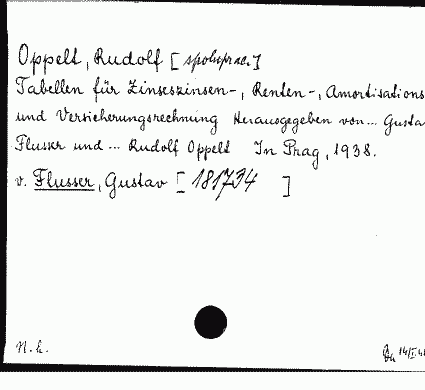 Oppelt, Rudolf [spoluprac.]
Tabellen für Zinseszinsen-, Renten-, Amortisations
und Versicherungsrechnung Herausgegeben von... Gusta
Flusser und ... Rudolf Oppelt In Prag, 1938.
v. Flusser, Gustav [181734 ]
N. k.
14/I.